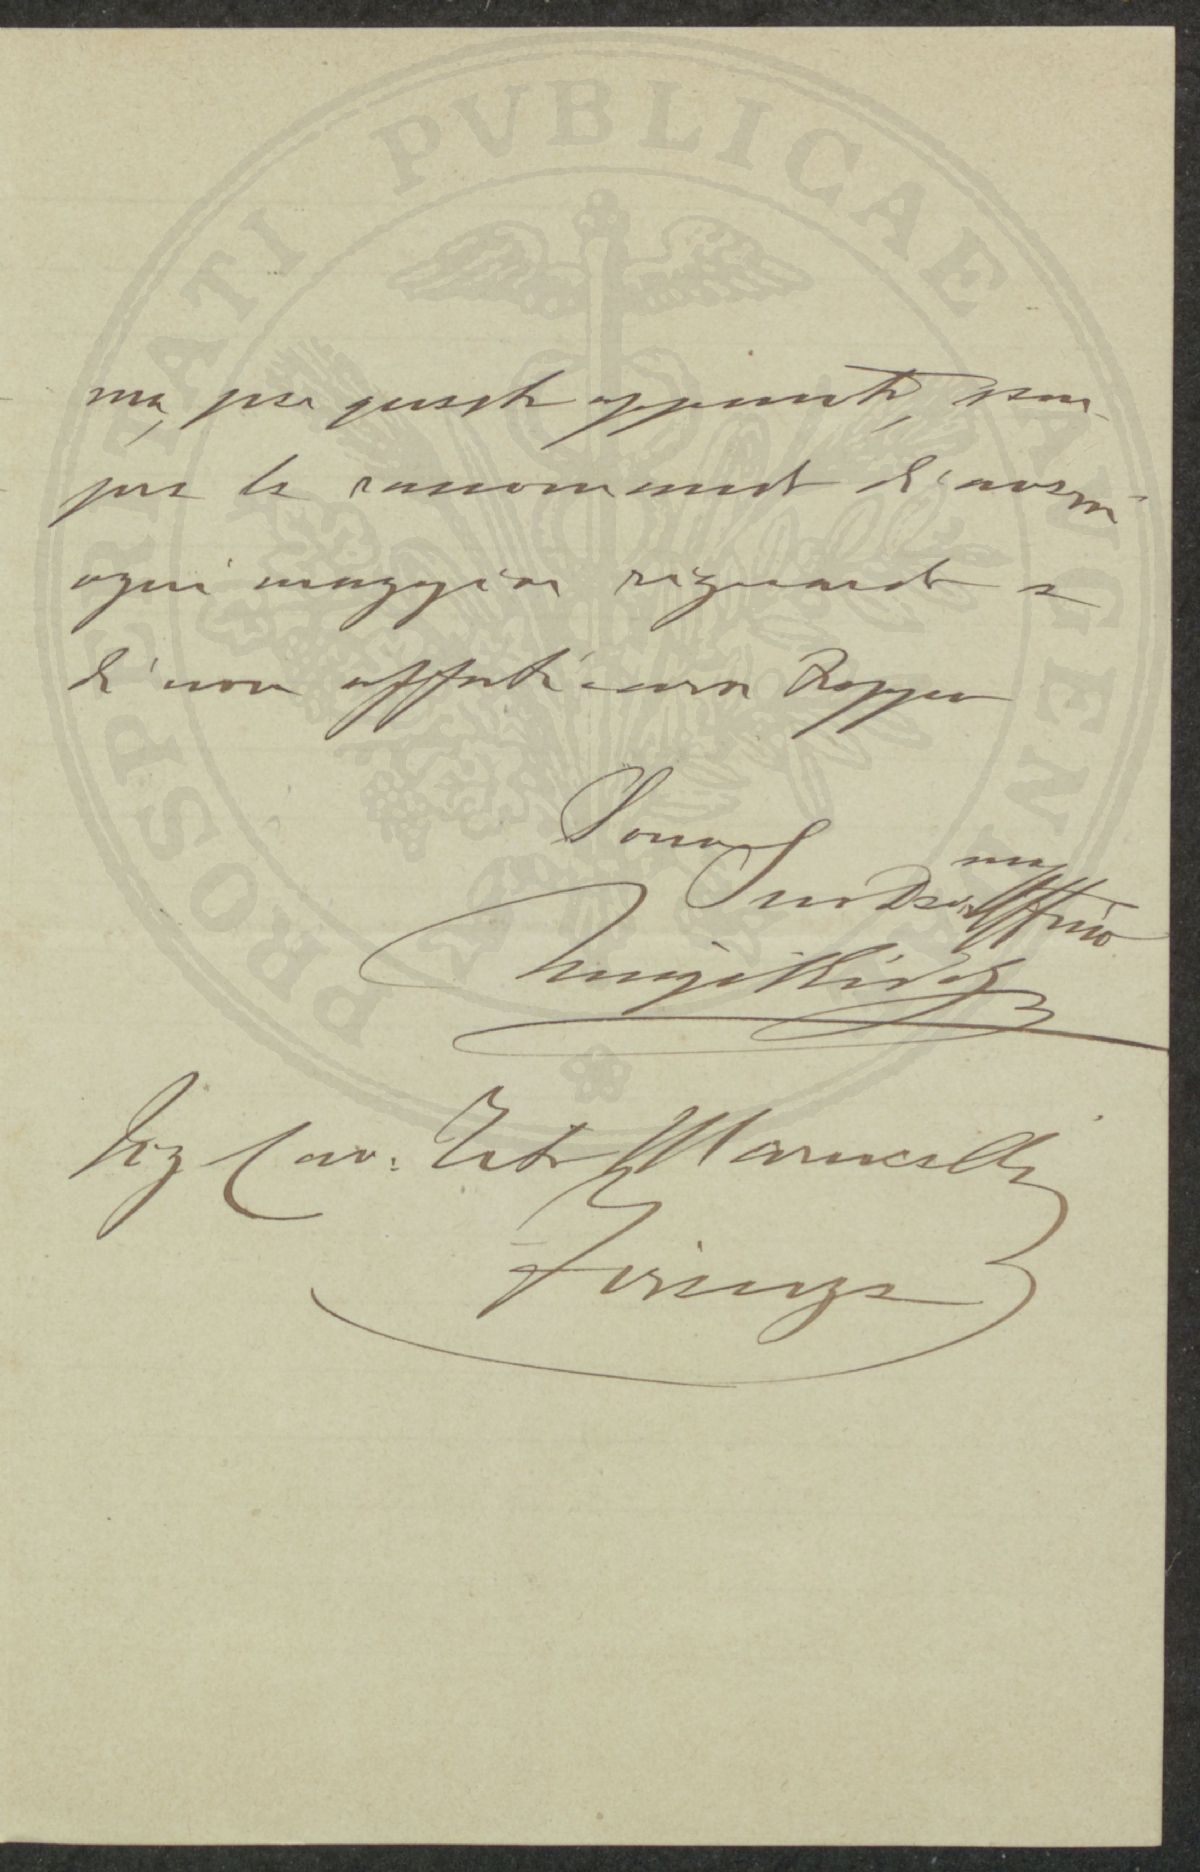 PROSPERITATI PVBLICAE AVGENDAE
ma, per questo appunto, sem-
pre le raccomando di aversi
ogni maggior riguardo e
di non affaticarsi troppo
Sono
Suo Dev mo Affmo
Luigi Ridolfi
Sig Cav: Tito Marucelli
Firenze